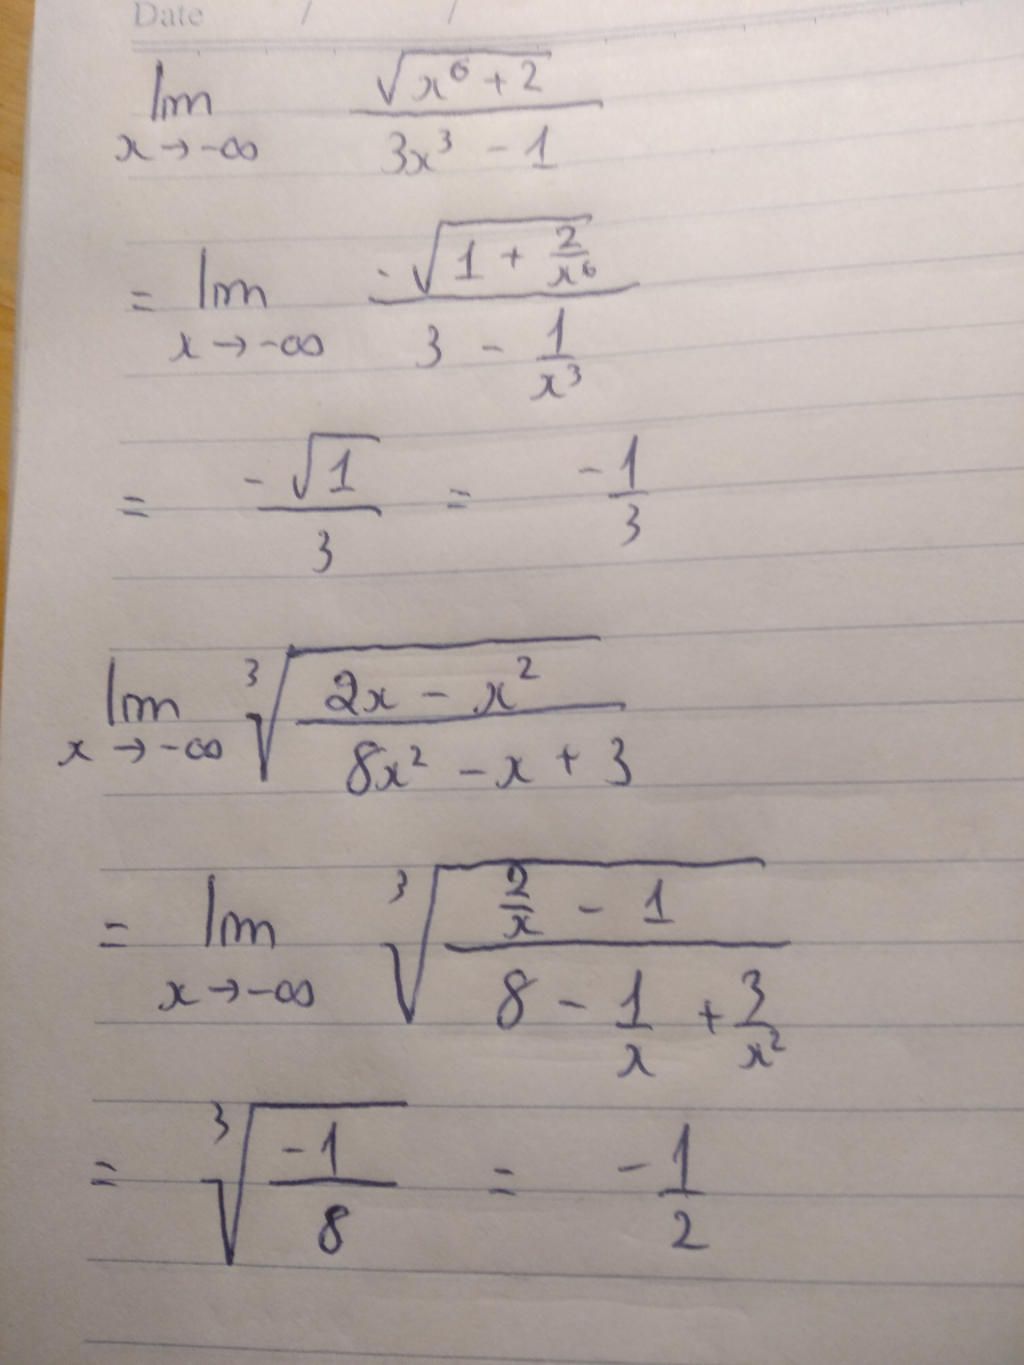 Date / /
lim x→-∞ √(x⁶ + 2) / (3x³ - 1)
= lim x→-∞ -√(1 + 2/x⁶) / (3 - 1/x³)
= -√1 / 3 = -1/3
lim x→-∞ ∛((2x - x²) / (8x² - x + 3))
= lim x→-∞ ∛((2/x - 1) / (8 - 1/x + 3/x²))
= ∛(-1/8) = -1/2